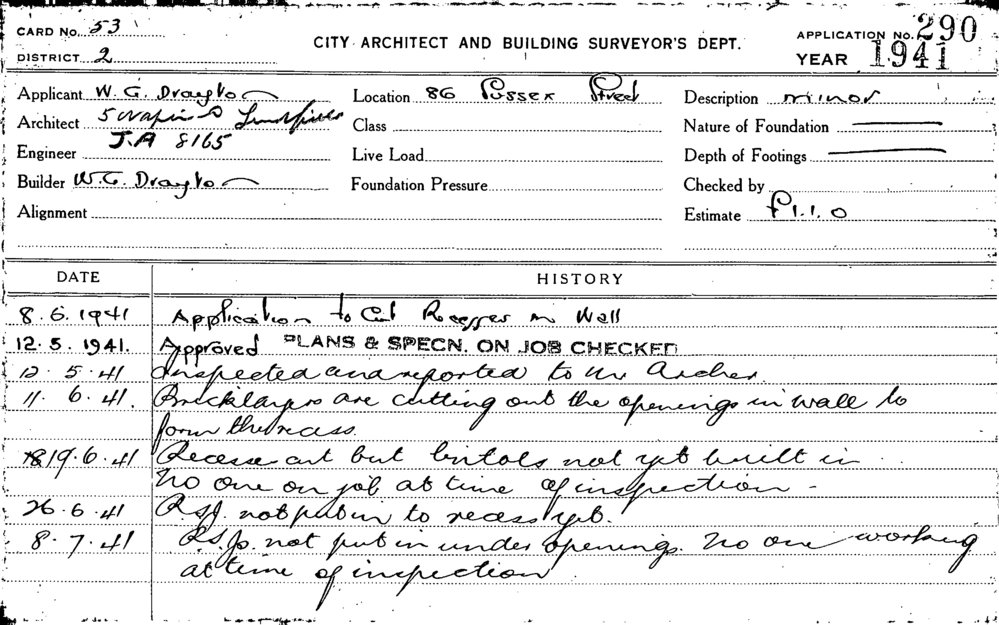 CARD No. 53
DISTRICT 2
CITY ARCHITECT AND BUILDING SURVEYOR'S DEPT.
APPLICATION No. 290
YEAR 1941
Applicant W. G. Drayton
Architect
J.A 8165
Engineer
Builder W. G. Drayton
Alignment
Location 86 Sussex Street
Class
Live Load
Foundation Pressure
Description minor
Nature of Foundation
Depth of Footings
Checked by
Estimate £1.1.0
DATE HISTORY
8.6.1941 Application to Cut Recesses in Wall
12.5.1941. Approved PLANS & SPECN. ON JOB CHECKED
12.5.41 Inspected and reported to Mr Archer
11.6.41. Bricklayers are cutting out the openings in wall to
form the recess.
19.6.41 Recess cut but lintols not yet built in
No one on job at time of inspection -
26.6.41 R.S.J. not put in to recess yet.
8.7.41 R.S.Js. not put in under openings. No one working
at time of inspection